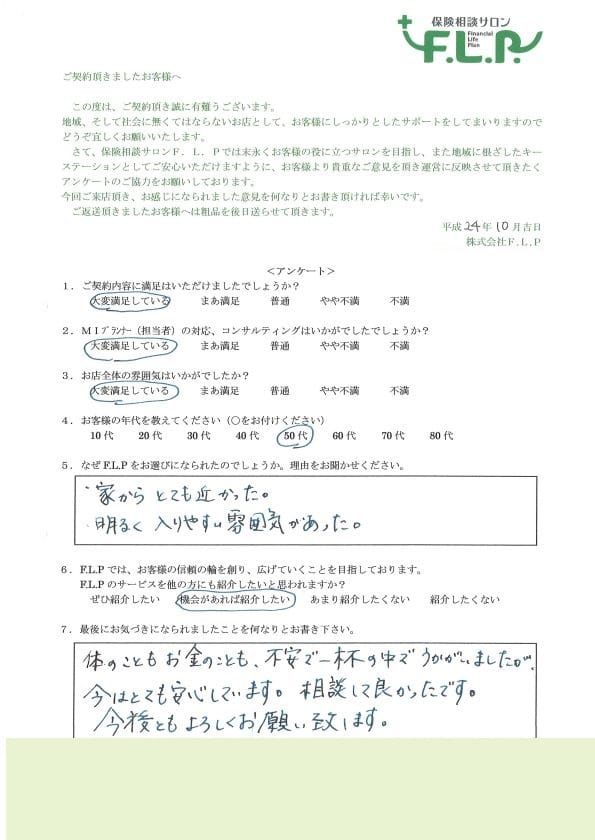 保険相談サロン
Financial
Life
Plan
F.L.P.
ご契約頂きましたお客様へ
この度は、ご契約頂き誠に有難うございます。
地域、そして社会に無くてはならないお店として、お客様にしっかりとしたサポートをしてまいりますので
どうぞ宜しくお願いいたします。
さて、保険相談サロンF．L．Pでは末永くお客様の役に立つサロンを目指し、また地域に根ざしたキー
ステーションとしてご安心いただけますように、お客様より貴重なご意見を頂き運営に反映させて頂きたく
アンケートのご協力をお願いしております。
今回ご来店頂き、お感じになられました意見を何なりとお書き頂ければ幸いです。
ご返送頂きましたお客様へは粗品を後日送らせて頂きます。
平成 24年 10月吉日
株式会社F.L.P
＜アンケート＞
1．ご契約内容に満足はいただけましたでしょうか？
大変満足している まあ満足 普通 やや不満 不満
2．MIプランナー（担当者）の対応、コンサルティングはいかがでしたでしょうか？
大変満足している まあ満足 普通 やや不満 不満
3．お店全体の雰囲気はいかがでしたか？
大変満足している まあ満足 普通 やや不満 不満
4．お客様の年代を教えてください（○をお付けください）
10代 20代 30代 40代 50代 60代 70代 80代
5．なぜF.L.Pをお選びになられたのでしょうか。理由をお聞かせください。
・家から とても近かった。
・明るく 入りやすい雰囲気があった。
6．F.L.Pでは、お客様の信頼の輪を創り、広げていくことを目指しております。
F.L.Pのサービスを他の方にも紹介したいと思われますか？
ぜひ紹介したい 機会があれば紹介したい あまり紹介したくない 紹介したくない
7．最後にお気づきになられましたことを何なりとお書き下さい。
体のことも お金のことも、不安で一杯の中で うかがいましたが、
今はとても安心しています。相談して良かったです。
今後とも よろしくお願い致します。